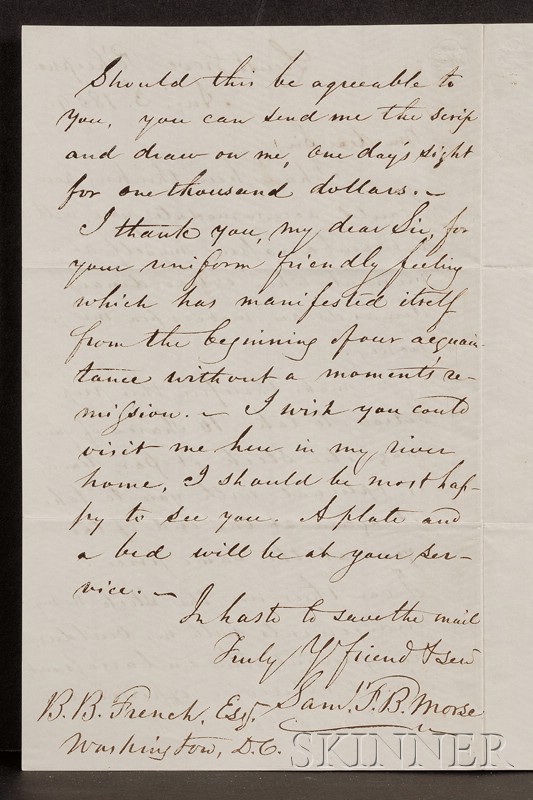 Should this be agreeable to
you, you can send me the scrip
and draw on me, one day's sight
for one thousand dollars. ~
I thank you, my dear Sir, for
your uniform friendly feeling
which has manifested itself
from the beginning of our acquain-
tance without a moment's re-
mission. ~ I wish you could
visit me here in my river
home, I should be most hap-
py to see you. A plate and
a bed will be at your ser-
vice. ~
In haste to save the mail
Truly Yr friend & ser
Saml. F. B. Morse
B. B. French, Esq.
Washington, D.C.
SKINNER